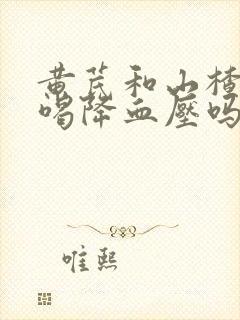 黄芪和山楂
喝降血壓吗
唯熙